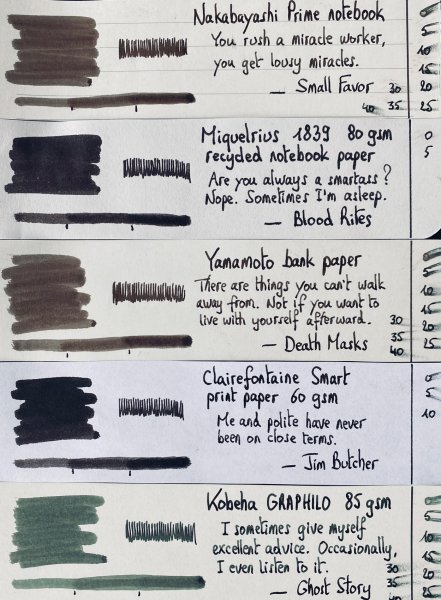 Nakabayashi Prime notebook
You rush a miracle worker,
you get lousy miracles.
— Small Favor
0
5
10
15
20
25
30
35
40
Miquelrius 1839 80 gsm
recycled notebook paper
Are you always a smartass?
Nope. Sometimes I'm asleep.
— Blood Rites
0
5
Yamamoto bank paper
There are things you can't walk
away from. Not if you want to
live with yourself afterward.
— Death Masks
5
10
15
20
25
30
35
40
Clairefontaine Smart
print paper 60 gsm
Me and polite have never
been on close terms.
— Jim Butcher
0
5
10
Kobeha GRAPHILO 85 gsm
I sometimes give myself
excellent advice. Occasionally,
I even listen to it.
— Ghost Story
5
10
15
20
25
30
35
40